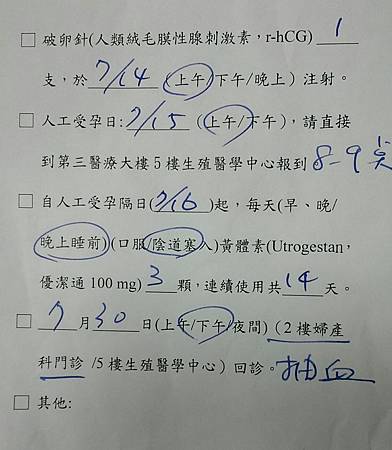 □ 破卵針(人類絨毛膜性腺刺激素，r-hCG) 1
支，於 7/14 (上午/下午/晚上) 注射。
□ 人工受孕日: 7/15 (上午/下午)，請直接
到第三醫療大樓5樓生殖醫學中心報到 8-9
□ 自人工受孕隔日(7/16)起，每天(早、晚/
晚上睡前)(口服/陰道塞入)黃體素(Utrogestan，
優潔通 100 mg) 3 顆，連續使用共 14 天。
□ 7 月 30 日(上午/下午/夜間) (2樓婦產
科門診 /5樓生殖醫學中心) 回診。抽血
□ 其他: